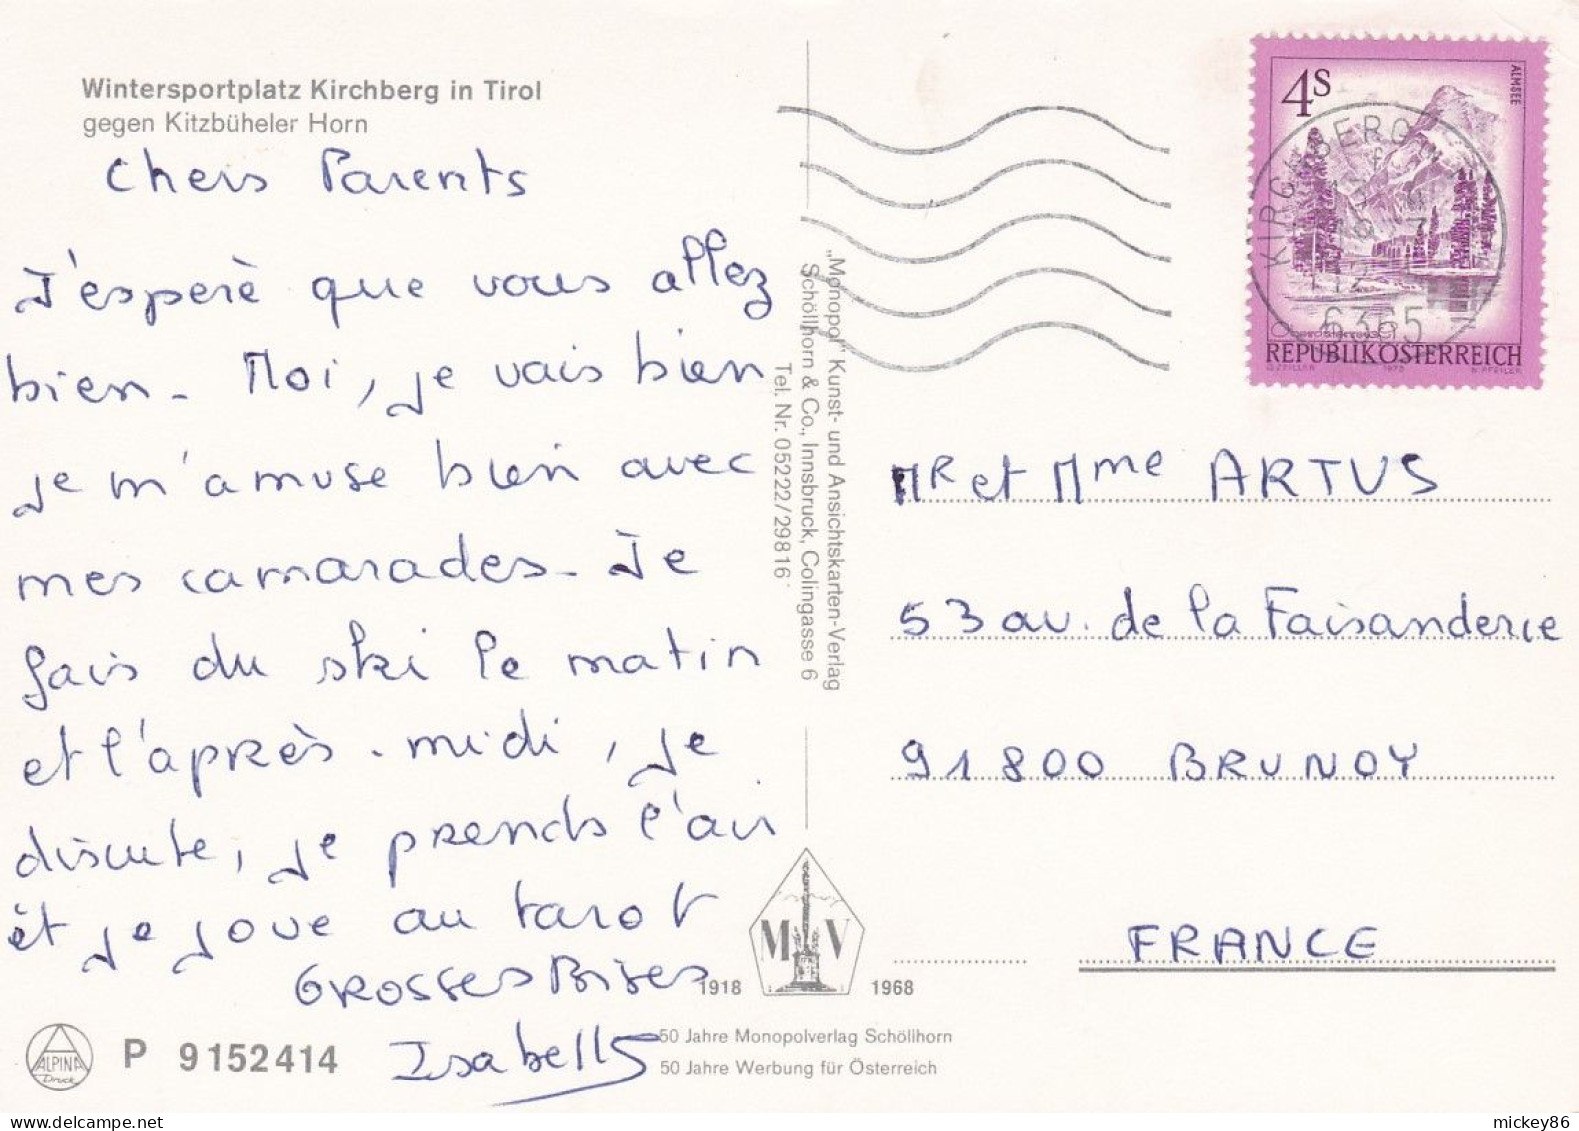 Wintersportplatz Kirchberg in Tirol
gegen Kitzbüheler Horn
Chers Parents
J'esperè que vous allez
bien. Moi, je vais bien
je m'amuse bien avec
mes camarades. Je
fais du ski le matin
et l'après-midi, je
discute, je prends l'air
et je joue au tarot
GROSSES Bises
Isabelle
P 9152414
ALPINA
Druck
„Monopol" Kunst- und Ansichtskarten-Verlag
Schöllhorn & Co., Innsbruck, Colingasse 6
Tel. Nr. 05222/29816
M V
1918 1968
50 Jahre Monopolverlag Schöllhorn
50 Jahre Werbung für Österreich
4S
ALMSEE
REPUBLIK ÖSTERREICH
O. ZEILLER 1973 N. PFEILER
6365
MR et Mme ARTUS
53 av. de la Faisanderie
91800 BRUNOY
FRANCE
mickey86